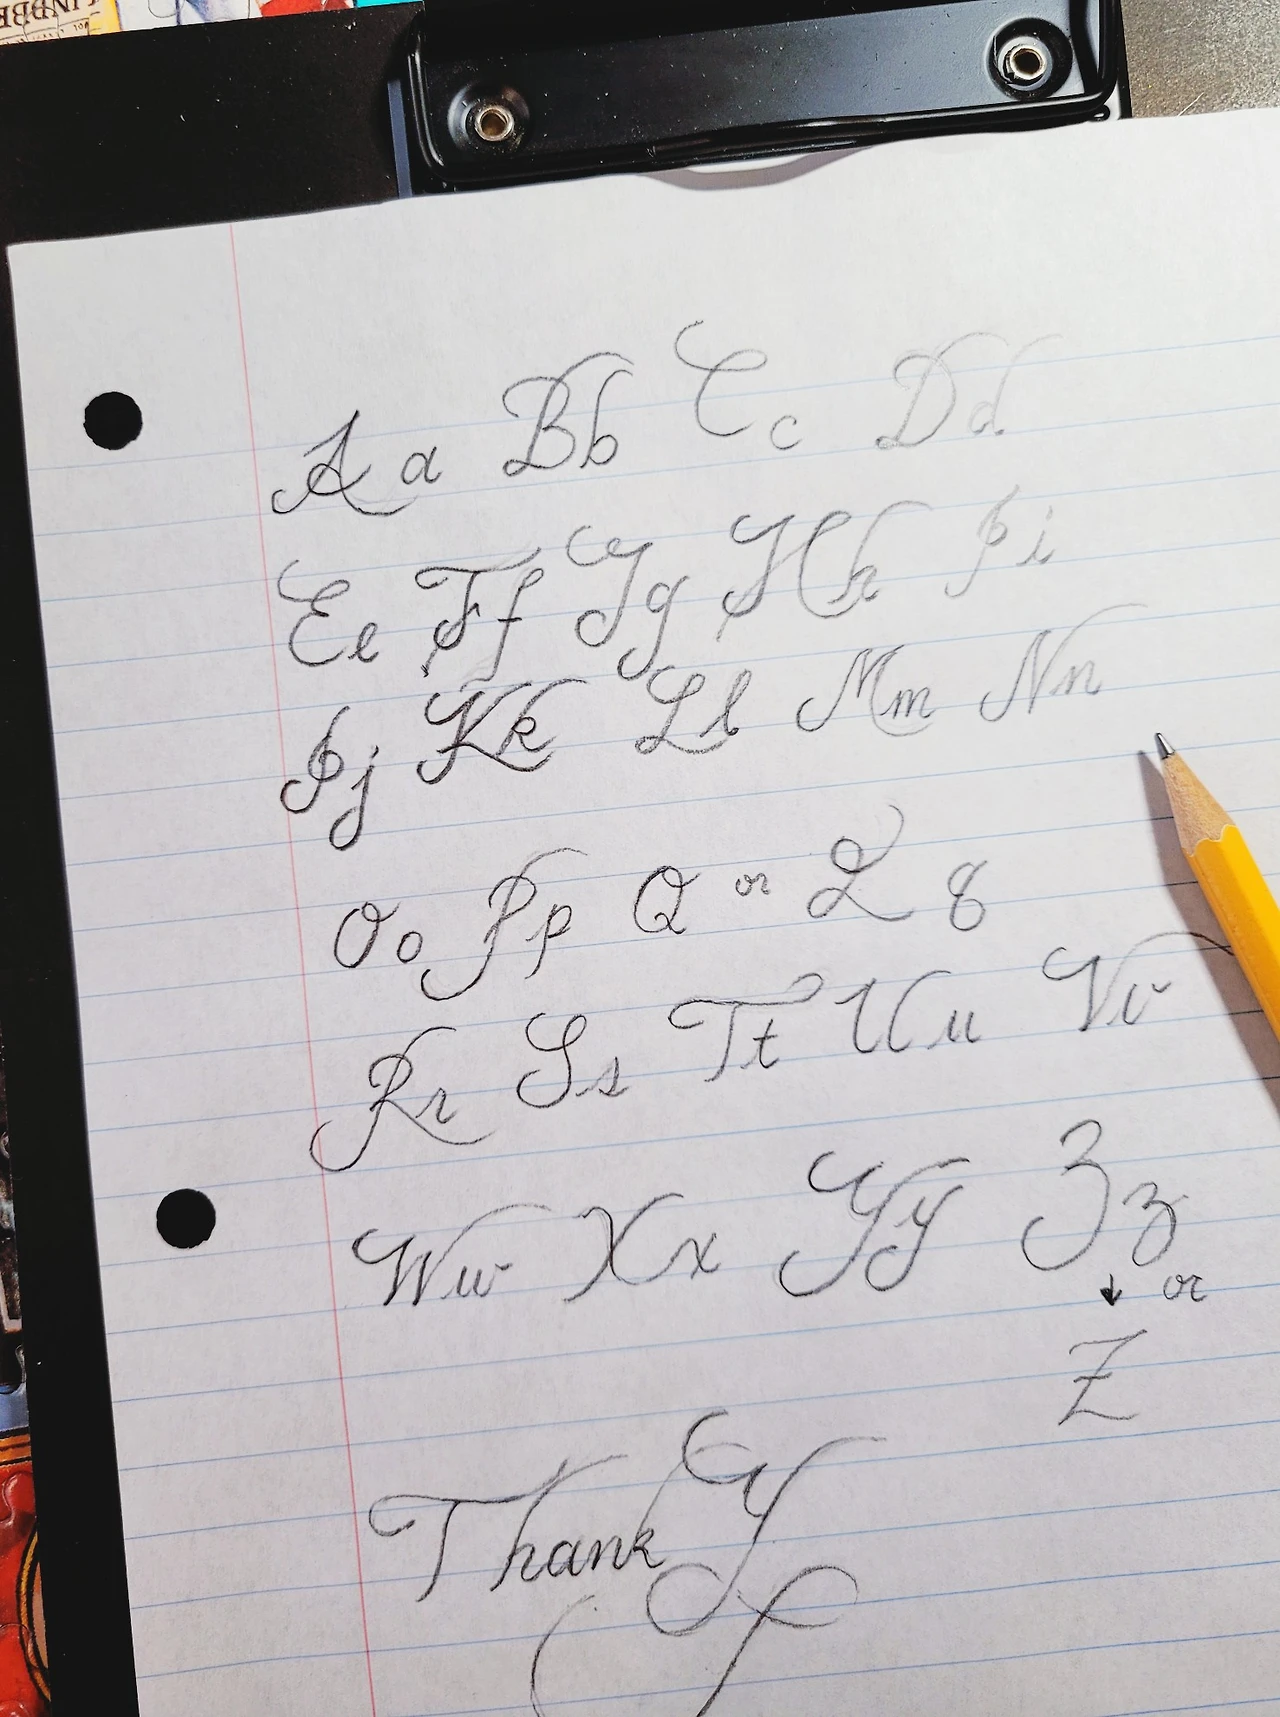 A a Bb Cc Dd
Ee Ff Gg Hh Ii
Jj Kk Ll Mm Nn
Oo Pp Q or Q q
Rr Ss Tt Uu Vv
Ww Xx Yy Zz
or
Z
Thank Y